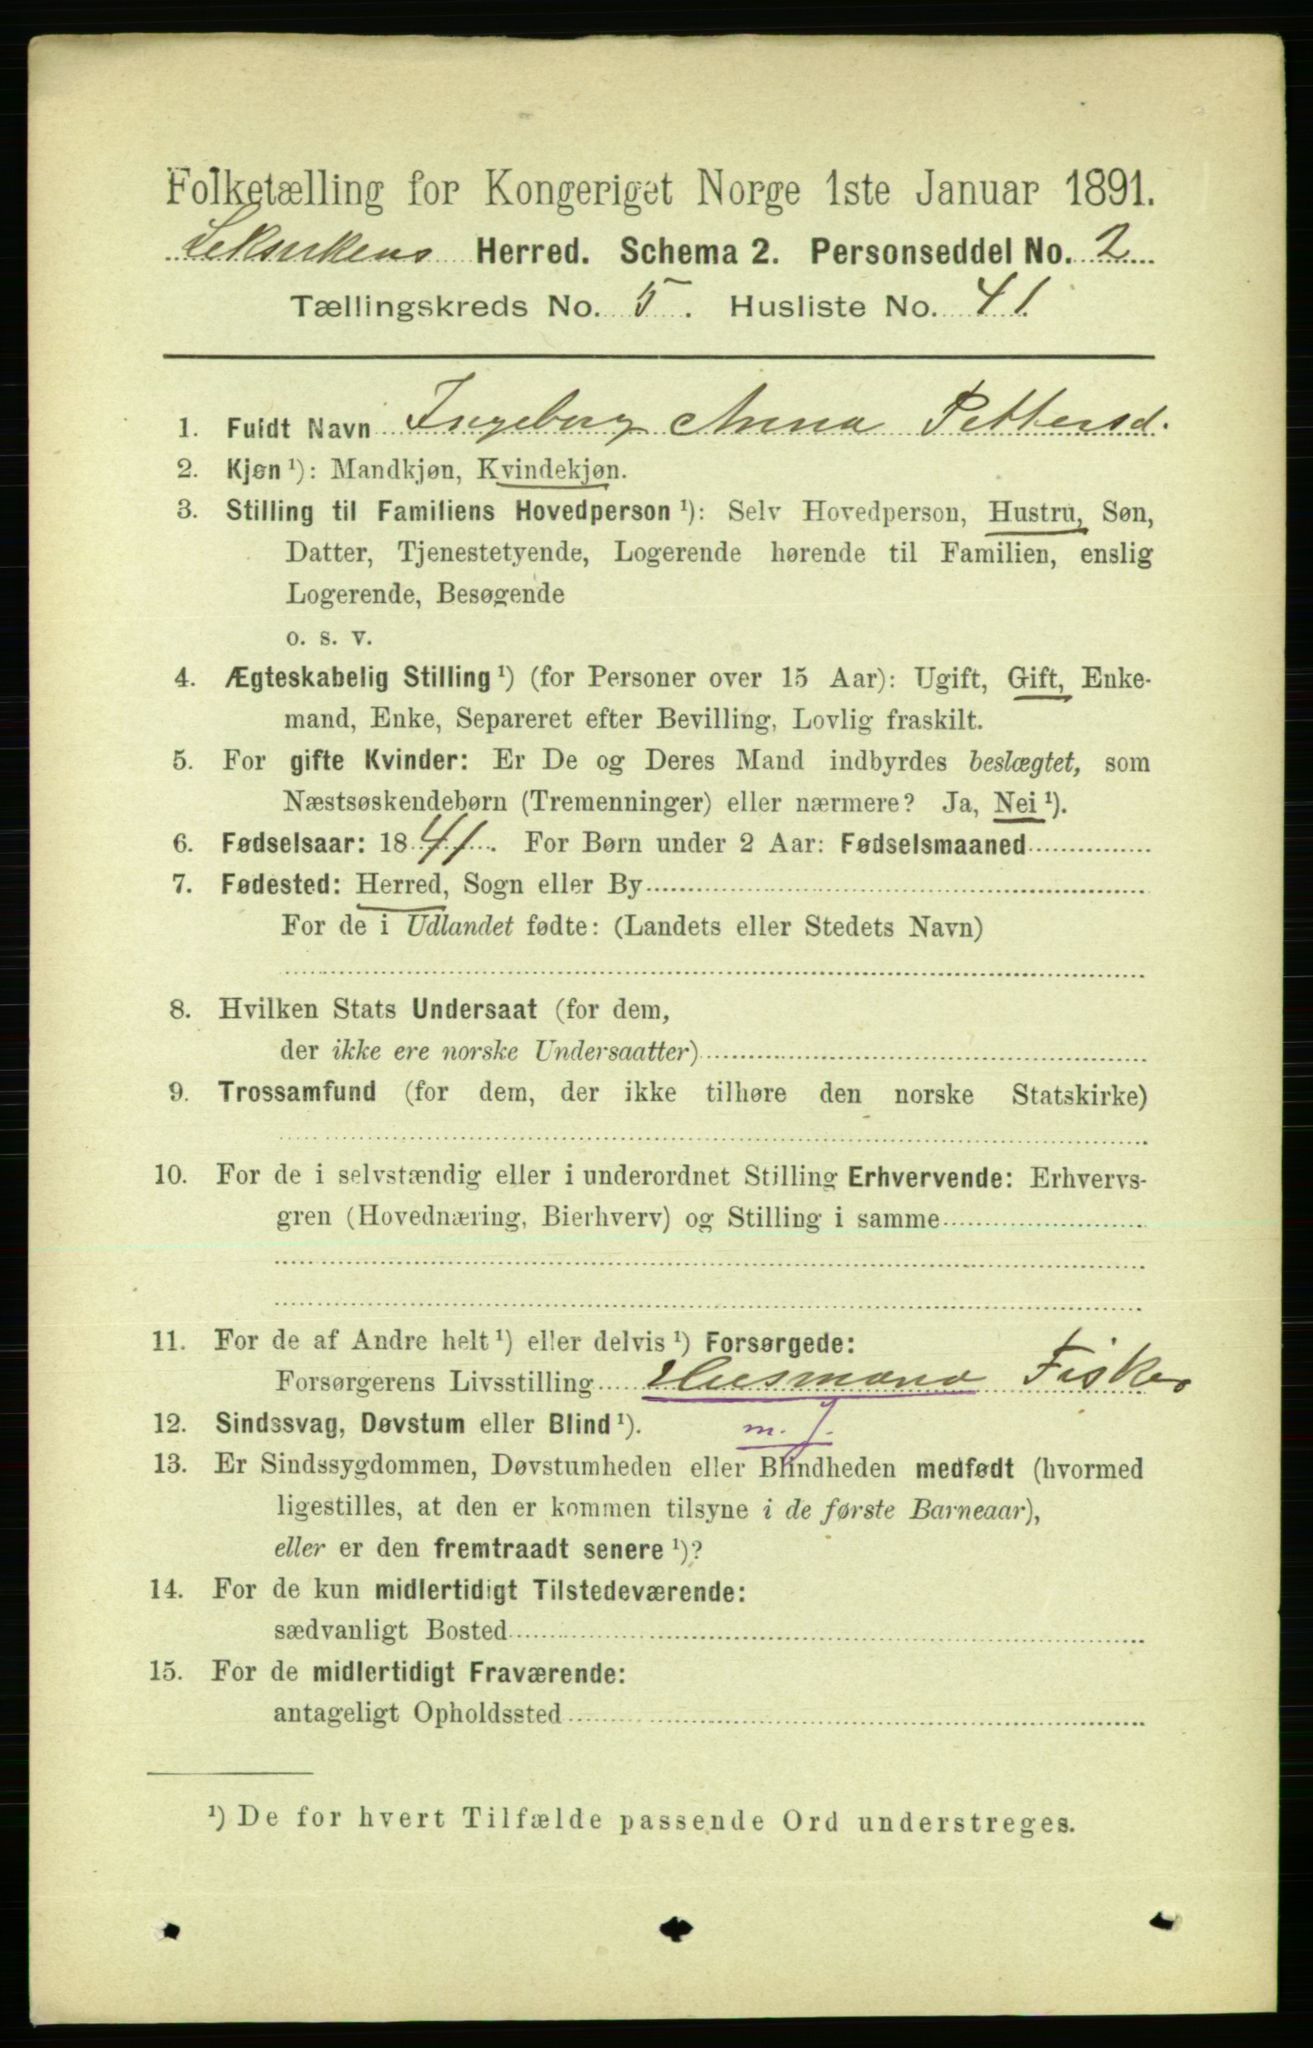 Folketælling for Kongeriget Norge 1ste Januar 1891.
Leksvikens Herred. Schema 2. Personseddel No. 2
Tællingskreds No. 5. Husliste No. 41
1. Fuldt Navn Ingeborg Anna Pettersd.
2. Kjøn ¹): Mandkjøn, Kvindekjøn.
3. Stilling til Familiens Hovedperson ¹): Selv Hovedperson, Hustru, Søn,
Datter, Tjenestetyende, Logerende hørende til Familien, enslig
Logerende, Besøgende
o. s. v.
4. Ægteskabelig Stilling ¹) (for Personer over 15 Aar): Ugift, Gift, Enke-
mand, Enke, Separeret efter Bevilling, Lovlig fraskilt.
5. For gifte Kvinder: Er De og Deres Mand indbyrdes beslægtet, som
Næstsøskendebørn (Tremenninger) eller nærmere? Ja, Nei ¹).
6. Fødselsaar: 1841. For Børn under 2 Aar: Fødselsmaaned
7. Fødested: Herred, Sogn eller By
For de i Udlandet fødte: (Landets eller Stedets Navn)
8. Hvilken Stats Undersaat (for dem,
der ikke ere norske Undersaatter)
9. Trossamfund (for dem, der ikke tilhøre den norske Statskirke)
10. For de i selvstændig eller i underordnet Stilling Erhvervende: Erhvervs-
gren (Hovednæring, Bierhverv) og Stilling i samme
11. For de af Andre helt ¹) eller delvis ¹) Forsørgede:
Forsørgerens Livsstilling Husmand Fisker
12. Sindssvag, Døvstum eller Blind ¹). m. J.
13. Er Sindssygdommen, Døvstumheden eller Blindheden medfødt (hvormed
ligestilles, at den er kommen tilsyne i de første Barneaar),
eller er den fremtraadt senere ¹)?
14. For de kun midlertidigt Tilstedeværende:
sædvanligt Bosted
15. For de midlertidigt Fraværende:
antageligt Opholdssted
¹) De for hvert Tilfælde passende Ord understreges.